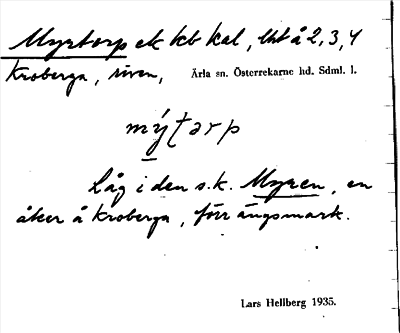 Myrtorp ek kb kal, Ut å 2, 3, 4
Kroberga, riven, Ärla sn. Österrekarne hd. Sdml. l.
mýtɔrp
Låg i den s.k. Myren, en
åker å Kroberga, förr ängsmark.
Lars Hellberg 1935.